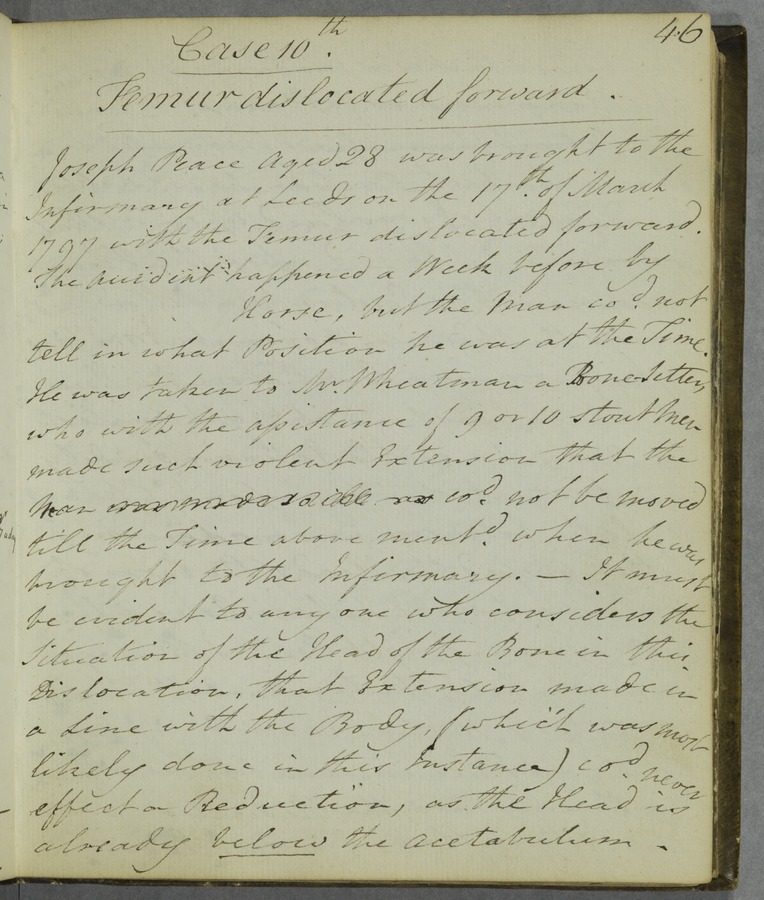 46
Case 10th.
Femur dislocated forward.
Joseph Peace Aged 28 was brought to the
Infirmary at Leeds on the 17th. of March
1797 with the Femur dislocated forward.
The accident happened a Week before by
Horse, but the Man cod. not
tell in what Position he was at the Time.
He was taken to Mr. Wheatman a Bone-setter,
who with the assistance of 9 or 10 stout Men
made such violent Extension that the
Man was made so ill as cod. not be moved
till the Time above mentd. when he was
brought to the Infirmary. — It must
be evident to any one who considers the
Situation of the Head of the Bone in this
Dislocation, that Extension made in
a Line with the Body, (which was most
likely done in this Instance) cod. never
effect a Reduction, as the Head is
already below the acetabulum.